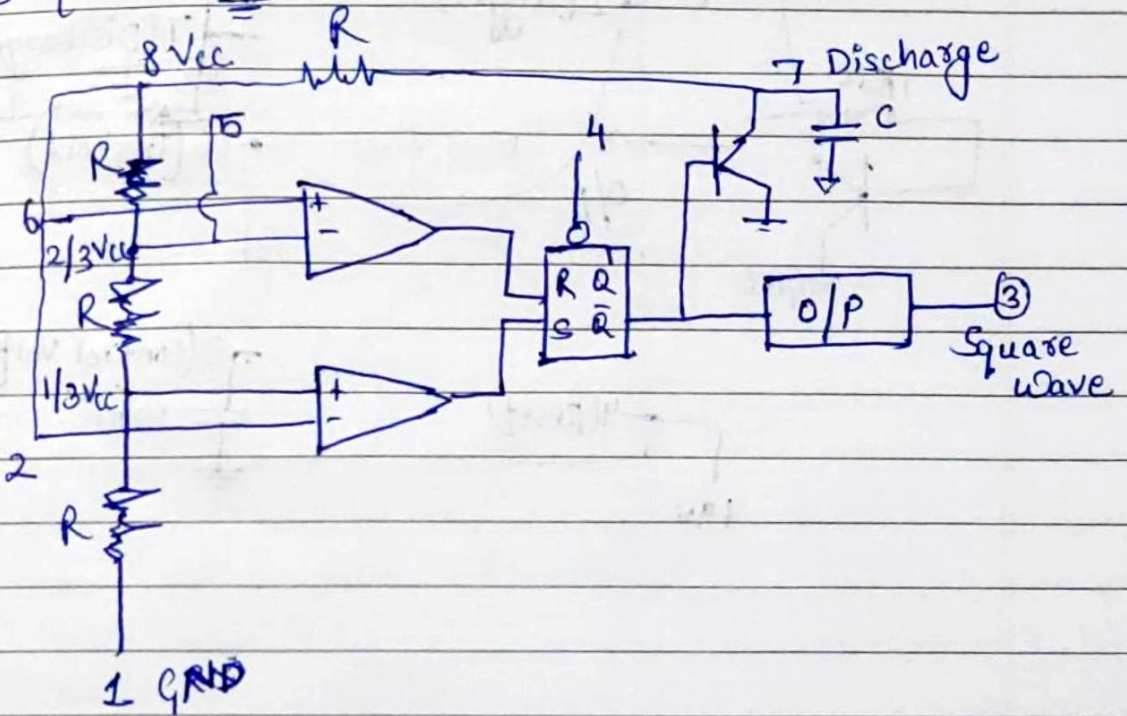 R
8 Vcc
7 Discharge
C
5
4
R
+
6
-
2/3Vcc
R Q
R
S Q̅
O/P
3
Square
Wave
1/3Vcc
+
-
2
R
1 GRND